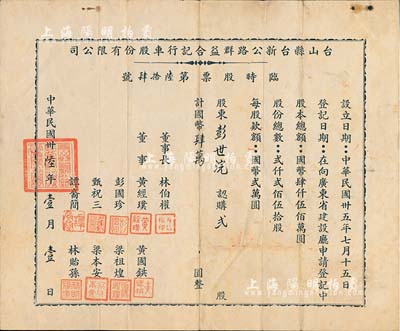 台山縣台新公路群益合記行車股份有限公司
臨時股票第陸拾肆號
設立日期：中華民國卅五年七月十五日
登記日期：在向廣東省建設廳申請登記中
股本總額：國幣肆仟伍佰萬圓
股份總數：貳仟貳佰伍拾股
每股款額：國幣貳萬圓
股東彭世 認購貳股
計國幣肆萬圓整
董事長 林伯權
董事 黃經璞 黃國鉷
彭國珍 梁祖煌
甄祝三 梁本安
譚裔簡 林貽孫
中華民國卅陸年壹月壹日